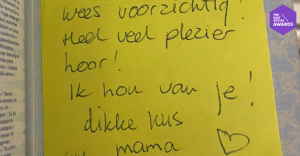 Wees voorzichtig!
Heel veel plezier
hoor!
Ik hou van je!
dikke kus
mama
AWARDS